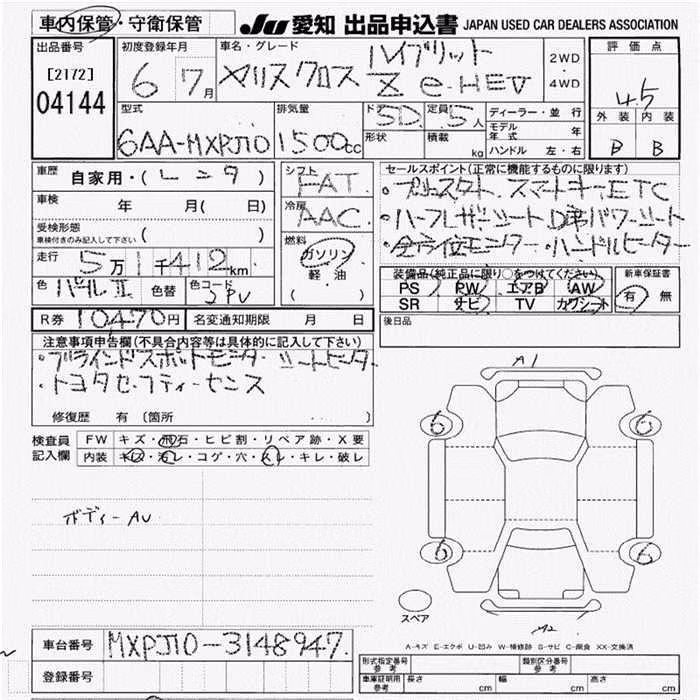 車内保管・守衛保管
JU 愛知 出品申込書 JAPAN USED CAR DEALERS ASSOCIATION
出品番号
[2172]
04144
初度登録年月
6 7月
車名・グレード
ハイブリット
ヤリスクロス Z e-HEV
2WD
・
4WD
評価点
4.5
外装 内装
B B
型式
6AA-MXPJ10
排気量
1500cc
ドア 5D
形状
定員 5人
積載 kg
ディーラー・並行
モデル年式 年
ハンドル 左・右
車歴 自家用・(レンタ)
車検 年 月( 日)
受検形態
車検付きのみ記入して下さい ( )
走行 5万1千412km
色 パールⅡ 色替 色コード 2PU
シフト
FAT
冷房
AAC
燃料
ガソリン
軽・油
( )
セールスポイント(正常に機能するものに限ります)
・プッシュスタート、スマートキー、ETC
・ハーフレザーシート D席パワーシート
・全方位モニター・ハンドルヒーター
装備品(純正品に限り○をつけてください)
PS PW エアB AW
SR ナビ TV カワシート
新車保証書
有 無
R券 10470円 名変通知期限 月 日
後日品
注意事項申告欄(不具合内容等は具体的に記入して下さい)
・ブラインドスポットモニタ・シートヒータ
・トヨタセーフティーセンス
修復歴 有 (箇所 )
検査員
記入欄
FW キズ・飛石・ヒビ割・リペア跡・X要
内装 キズ・汚レ・コゲ・穴・スレ・キレ・破レ
ボディー AU
A1
6 6
6 6
スペア
A2
A-キズ E-エクボ U-凹み W-補修跡 S-サビ C-腐食 XX-交換済
車台番号 MXPJ10-3148947.
登録番号
形式指定番号 参考
類別区分番号 参考
車庫証明用 参考 長さ cm 幅 cm 高さ cm